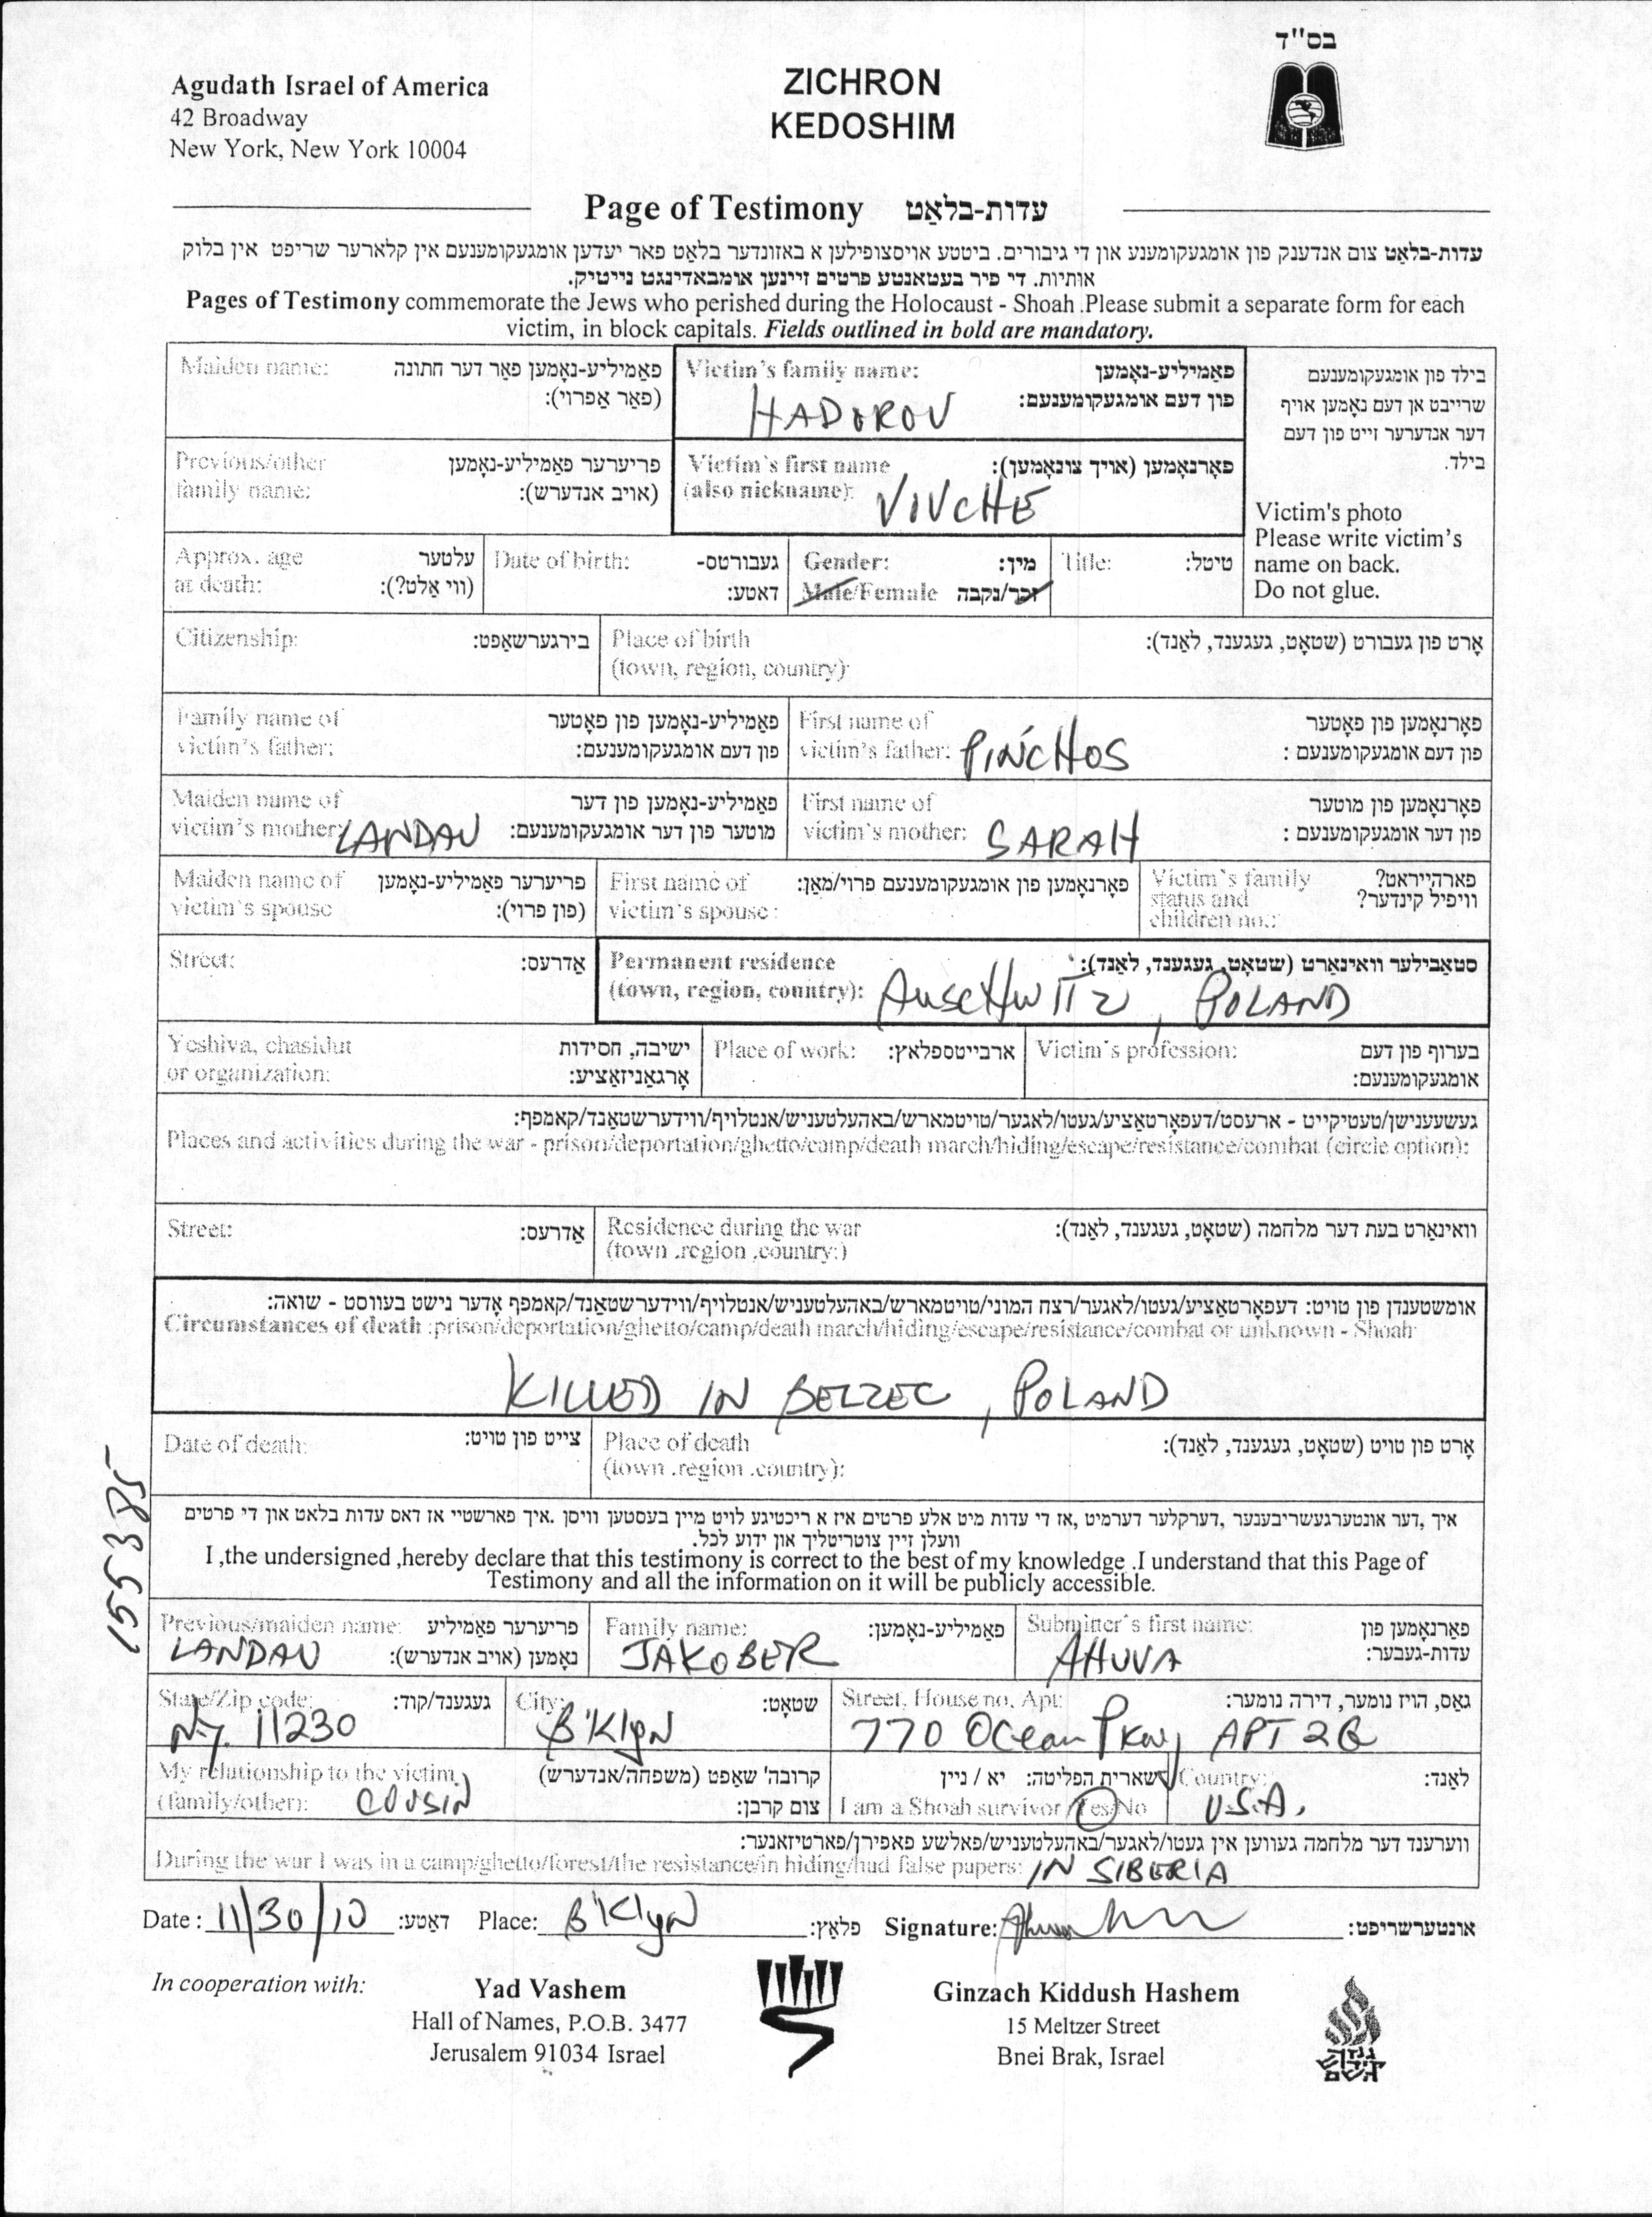 בס"ד
Agudath Israel of America
42 Broadway
New York, New York 10004
ZICHRON
KEDOSHIM
Page of Testimony עדות-בלאַט
עדות-בלאַט צום אנדענק פון אומגעקומענע און די גיבורים. ביטטע אויסצופילען א באזונדער בלאַט פאר יעדען אומגעקומענעם אין קלארער שריפט אין בלוק
אותיות. די פיר בעטאנטע פרטים זיינען אומבאדינגט נייטיק.
Pages of Testimony commemorate the Jews who perished during the Holocaust - Shoah .Please submit a separate form for each
victim, in block capitals. Fields outlined in bold are mandatory.
Maiden name: פאַמיליע-נאָמען פאַר דער חתונה
(פאַר אַפרוי):
Victim's family name: פאַמיליע-נאָמען
פון דעם אומגעקומענעם:
HADOROV
בילד פון אומגעקומענעם
שרייבט אן דעם נאָמען אויף
דער אנדערער זייט פון דעם
בילד.
Victim's photo
Please write victim's
name on back.
Do not glue.
Previous/other פריערער פאַמיליע-נאָמען
family name: (אויב אנדערש):
Victim's first name פאָרנאָמען (אויך צונאָמען):
(also nickname): VIVCHE
Approx. age עלטער
at death: (ווי אַלט?):
Date of birth: געבורטס-
דאַטע:
Gender: מין:
Male/Female זכר/נקבה
Title: טיטל:
Citizenship: בירגערשאַפט:
Place of birth אָרט פון געבורט (שטאָט, געגענד, לאַנד):
(town, region, country):
Family name of פאַמיליע-נאָמען פון פאָטער
victim's father: פון דעם אומגעקומענעם:
First name of פאָרנאָמען פון פאָטער
victim's father: PINCHOS פון דעם אומגעקומענעם :
Maiden name of פאַמיליע-נאָמען פון דער
victim's mother: LANDAU מוטער פון דער אומגעקומענעם:
First name of פאָרנאָמען פון מוטער
victim's mother: SARAH פון דער אומגעקומענעם :
Maiden name of פריערער פאַמיליע-נאָמען
victim's spouse (פון פרוי):
First name of פאָרנאָמען פון אומגעקומענעם פרוי/מאַן:
victim's spouse :
Victim's family פארהייראט?
status and וויפיל קינדער?
children no.:
Street: אַדרעס:
Permanent residence סטאַבילער וואוינאָרט (שטאָט, געגענד, לאַנד):
(town, region, country): AUSCHWITZ, POLAND
Yeshiva, chasidut ישיבה, חסידות
or organization: אָרגאַניזאַציע:
Place of work: ארבייטספלאץ:
Victim's profession: בערוף פון דעם
אומגעקומענעם:
געשעענישן/טעטיקייט - ארעסט/דעפאָרטאַציע/געטו/לאגער/טויטמארש/באהעלטעניש/אנטלויף/ווידערשטאַנד/קאמפף:
Places and activities during the war - prison/deportation/ghetto/camp/death march/hiding/escape/resistance/combat (circle option):
Street: אַדרעס:
Residence during the war וואוינאָרט בעת דער מלחמה (שטאָט, געגענד, לאַנד):
(town .region .country:)
אומשטענדן פון טויט: דעפאָרטאַציע/געטו/לאגער/רצח המוני/טויטמארש/באהעלטעניש/אנטלויף/ווידערשטאַנד/קאמפף אָדער נישט בעווסט - שואה:
Circumstances of death :prison/deportation/ghetto/camp/death march/hiding/escape/resistance/combat or unknown - Shoah
KILLED IN BELZEC, POLAND
Date of death: צייט פון טויט:
Place of death אָרט פון טויט (שטאָט, געגענד, לאַנד):
(town .region .country):
155385
איך ,דער אונטערגעשריבענער ,דערקלער דערמיט ,אז די עדות מיט אלע פרטים איז א ריכטיגע לויט מיין בעסטען וויסן .איך פארשטיי אז דאס עדות בלאט און די פרטים
וועלן זיין צוטריטליך און ידוע לכל.
I ,the undersigned ,hereby declare that this testimony is correct to the best of my knowledge .I understand that this Page of
Testimony and all the information on it will be publicly accessible.
Previous/maiden name: פריערער פאַמיליע
LANDAU נאָמען (אויב אנדערש):
Family name: פאַמיליע-נאָמען:
JAKOBER
Submitter's first name: פאָרנאָמען פון
AHUVA עדות-געבער:
State/Zip code: געגענד/קוד:
NY. 11230
City: שטאָט:
B'Klyn
Street, House no, Apt: גאַס, הויז נומער, דירה נומער:
770 Ocean Pkwy APT 2G
My relationship to the victim קרובה' שאַפט (משפחה/אנדערש)
(family/other): COUSIN צום קרבן:
שארית הפליטה: יא / ניין
I am a Shoah survivor Yes/No
Country: לאַנד:
U.S.A.
ווערענד דער מלחמה געווען אין געטו/לאגער/באַהעלטעניש/פאלשע פאפירן/פארטיזאנער:
During the war I was in a camp/ghetto/forest/the resistance/in hiding/had false papers: IN SIBERIA
Date : 11/30/10 דאַטע: Place: B'Klyn פלאַץ: Signature: אונטערשריפט:
In cooperation with:
Yad Vashem
Hall of Names, P.O.B. 3477
Jerusalem 91034 Israel
Ginzach Kiddush Hashem
15 Meltzer Street
Bnei Brak, Israel
גנזך
קידוש
השם